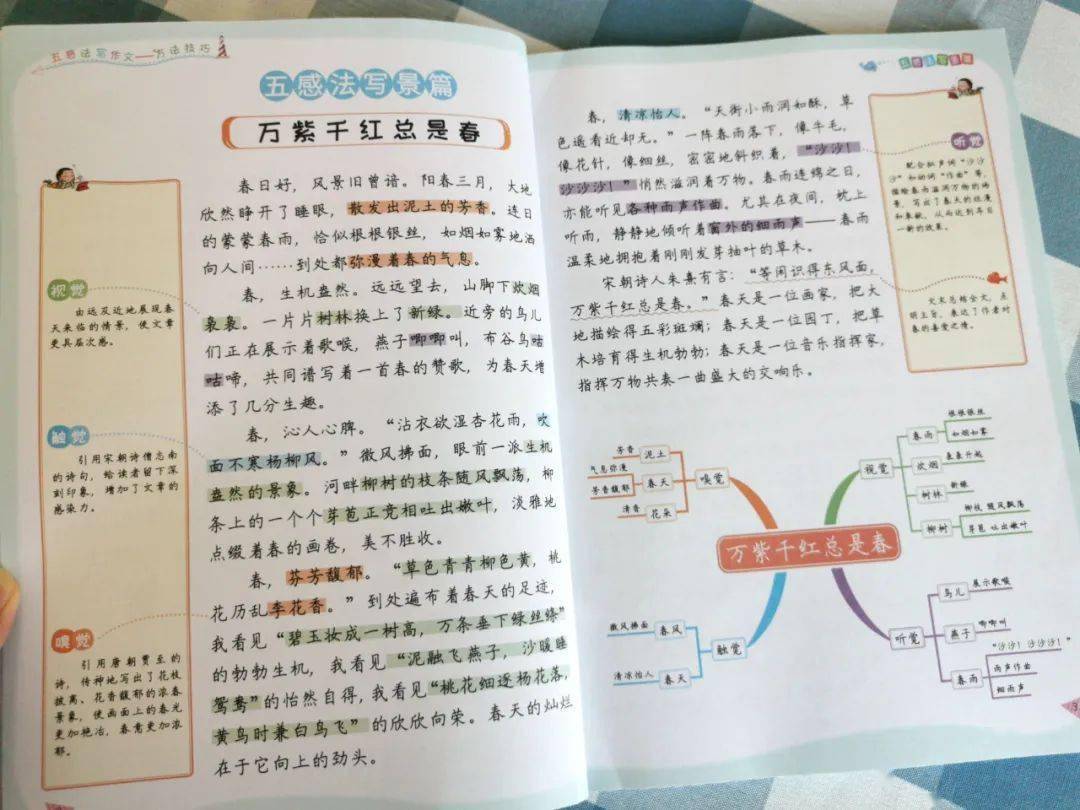 五感法写作文——方法技巧
五感法写景篇
万紫千红总是春
春日好，风景旧曾谙。阳春三月，大地
欣然睁开了睡眼，散发出泥土的芳香。连日
的蒙蒙春雨，恰似根根银丝，如烟如雾地洒
向人间……到处都弥漫着春的气息。
春，生机盎然。远远望去，山脚下炊烟
袅袅。一片片树林换上了新绿。近旁的鸟儿
们正在展示着歌喉，燕子唧唧叫，布谷鸟咕
咕啼，共同谱写着一首春的赞歌，为春天增
添了几分生趣。
春，沁人心脾。“沾衣欲湿杏花雨，吹
面不寒杨柳风。”微风拂面，眼前一派生机
盎然的景象。河畔柳树的枝条随风飘荡，柳
条上的一个个芽苞正竞相吐出嫩叶，淡雅地
点缀着春的画卷，美不胜收。
春，芬芳馥郁。“草色青青柳色黄，桃
花历乱李花香。”到处遍布着春天的足迹，
我看见“碧玉妆成一树高，万条垂下绿丝绦”
的勃勃生机，我看见“泥融飞燕子，沙暖睡
鸳鸯”的怡然自得，我看见“桃花细逐杨花落，
黄鸟时兼白鸟飞”的欣欣向荣。春天的灿烂
在于它向上的劲头。
视觉
由远及近地展现春
天来临的情景，使文章
更具层次感。
触觉
引用宋朝诗僧志南
的诗句，给读者留下深
刻印象，增加了文章的
感染力。
嗅觉
引用唐朝贾至的
诗，传神地写出了花枝
披离、花香馥郁的浓春
景象，使画面上的春光
更加艳冶，春意更加浓
郁。
五感法写景篇
春，清凉怡人。“天街小雨润如酥，草
色遥看近却无。”一阵春雨落下，像牛毛，
像花针，像细丝，密密地斜织着，“沙沙！
沙沙沙！”悄然滋润着万物。春雨连绵之日，
亦能听见各种雨声作曲。尤其在夜间，枕上
听雨，静静地倾听着窗外的细雨声——春雨
温柔地拥抱着刚刚发芽抽叶的草木。
宋朝诗人朱熹有言：“等闲识得东风面，
万紫千红总是春。”春天是一位画家，把大
地描绘得五彩斑斓；春天是一位园丁，把草
木培育得生机勃勃；春天是一位音乐指挥家，
指挥万物共奏一曲盛大的交响乐。
听觉
配合拟声词“沙沙
沙”和动词“作曲”等，
描绘春雨滋润万物的场
景，写出了春天的烂漫
和奉献，从而达到耳目
一新的效果。
文末总结全文，点
明主旨，表达了作者对
春的喜爱之情。
万紫千红总是春
嗅觉
泥土
芳香
春天
气息弥漫
芳香馥郁
花朵
清香
视觉
春雨
根根银丝
如烟如雾
炊烟
袅袅升起
树林
新绿
柳树
柳枝 随风飘荡
芽苞 吐出嫩叶
触觉
春风
微风拂面
春天
清凉怡人
听觉
鸟儿
展示歌喉
燕子
唧唧叫
春雨
“沙沙！沙沙沙！”
雨声作曲
细雨声
3